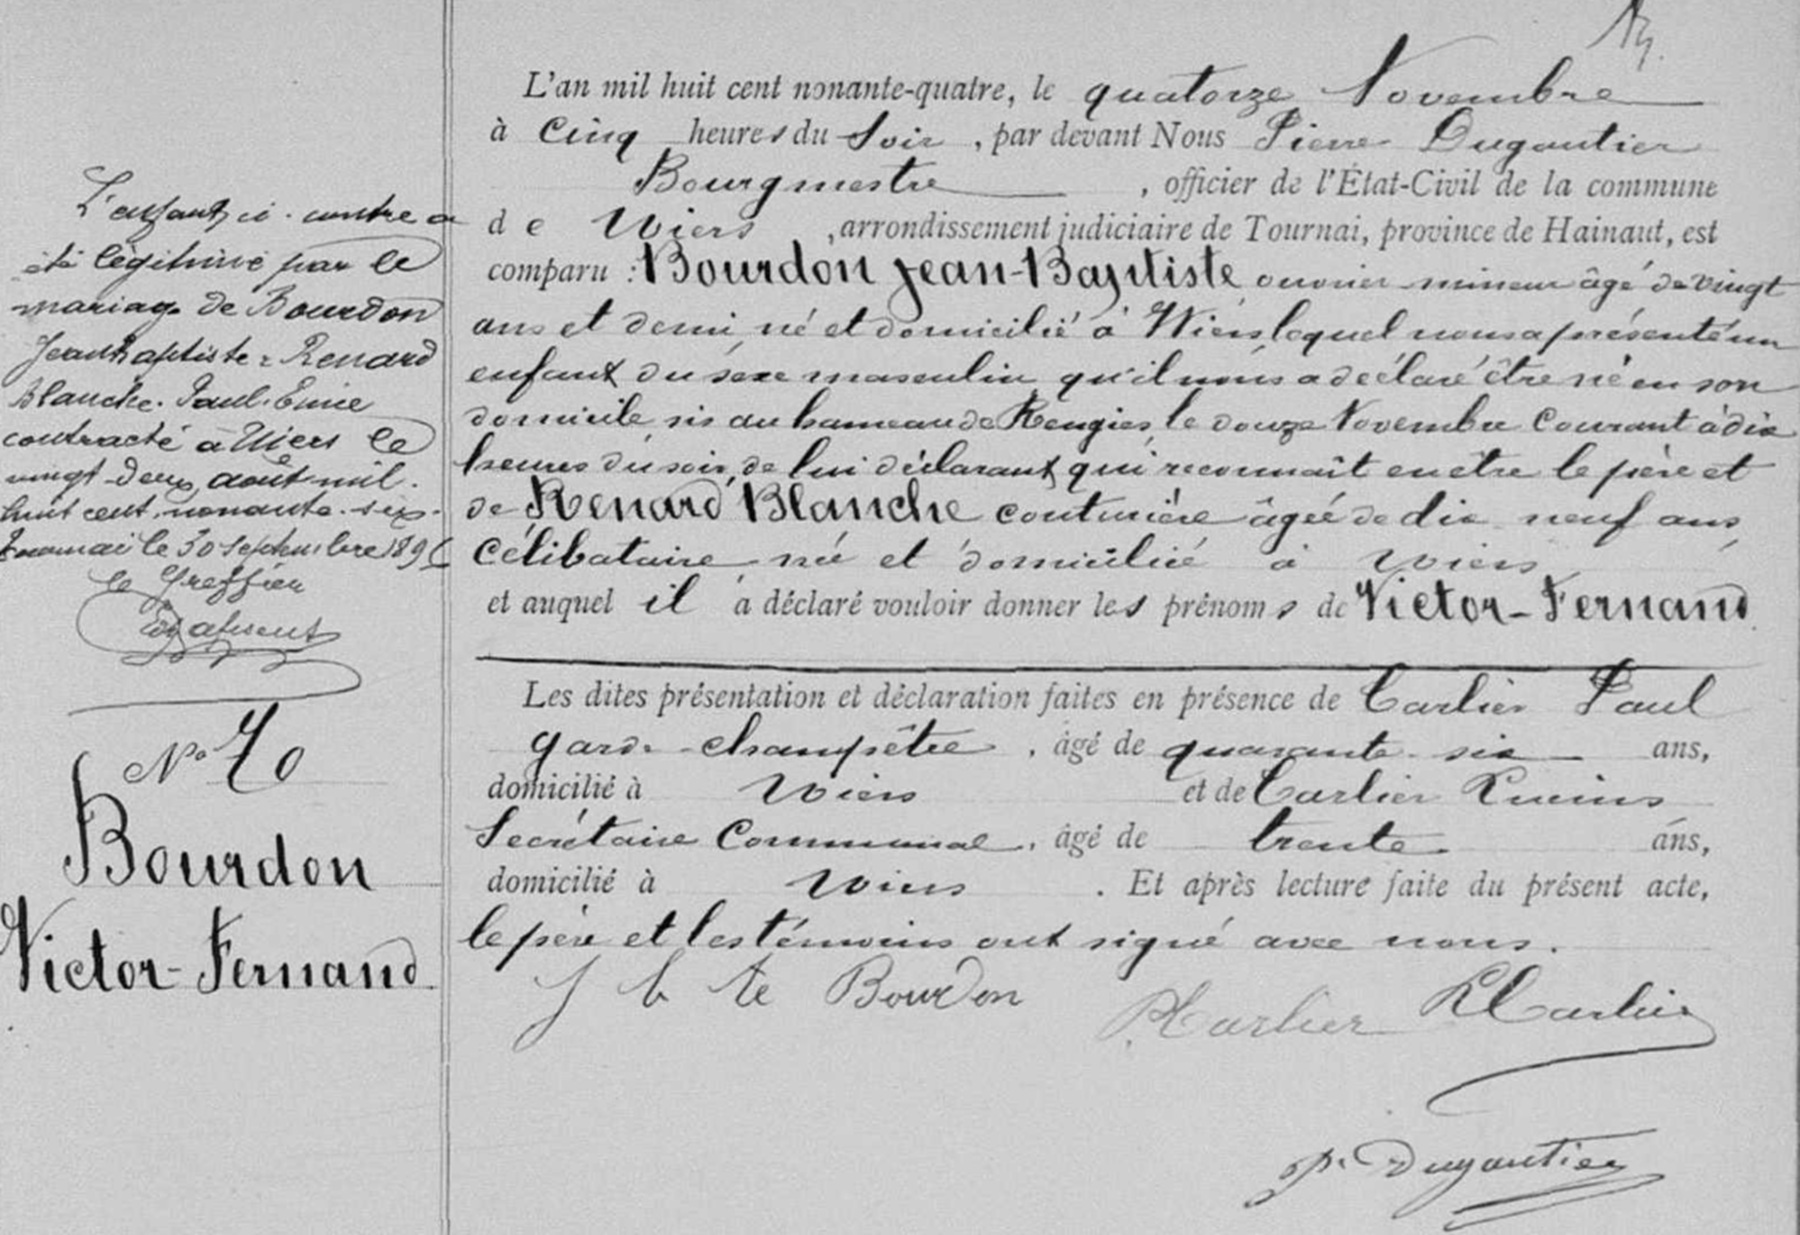 L'enfant ci-contre a
été légitimé par le
mariage de Bourdon
Jean Baptiste & Renard
Blanche
contracté à Wiers le
vingt-deux août mil
huit cent nonante-six.
Tournai le 30 Septembre 1896
le Greffier
No 70
Bourdon
Victor-Fernand
L'an mil huit cent nonante-quatre, le quatorze Novembre
à Cinq heures du Soir, par devant Nous Pierre Dugautier
Bourgmestre, officier de l'État-Civil de la commune
de Wiers, arrondissement judiciaire de Tournai, province de Hainaut, est
comparu : Bourdon Jean-Baptiste, ouvrier mineur âgé de vingt
ans et demi, né et domicilié à Wiers, lequel nous a présenté un
enfant du sexe masculin qu'il nous a déclaré être né en son
domicile sis au hameau de Rengies, le douze Novembre Courant à dix
heures du soir, de lui déclarant qui reconnaît en être le père et
de Renard Blanche couturière âgée de dix neuf ans,
Célibataire née et domicilié à Wiers
et auquel il a déclaré vouloir donner les prénoms de Victor-Fernand
Les dites présentation et déclaration faites en présence de Carlier Paul
garde-champêtre, âgé de quarante-six ans,
domicilié à Wiers et de Carlier
Secrétaire Communal, âgé de trente ans,
domicilié à Wiers. Et après lecture faite du présent acte,
le père et les témoins ont signé avec nous.
J b te Bourdon
PCarlier
Carlier
P. Dugautier